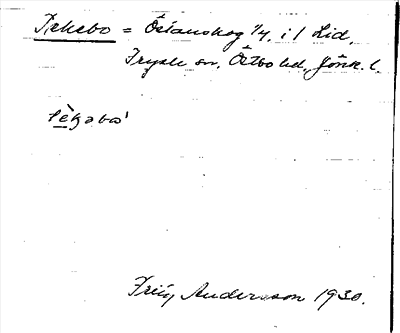 Tekebo = Östanskog 1/4. i 1 Lid,
Tryde sn. Östbo hd., Jönk. l.
tè̱kabo'
Andersson 1930.